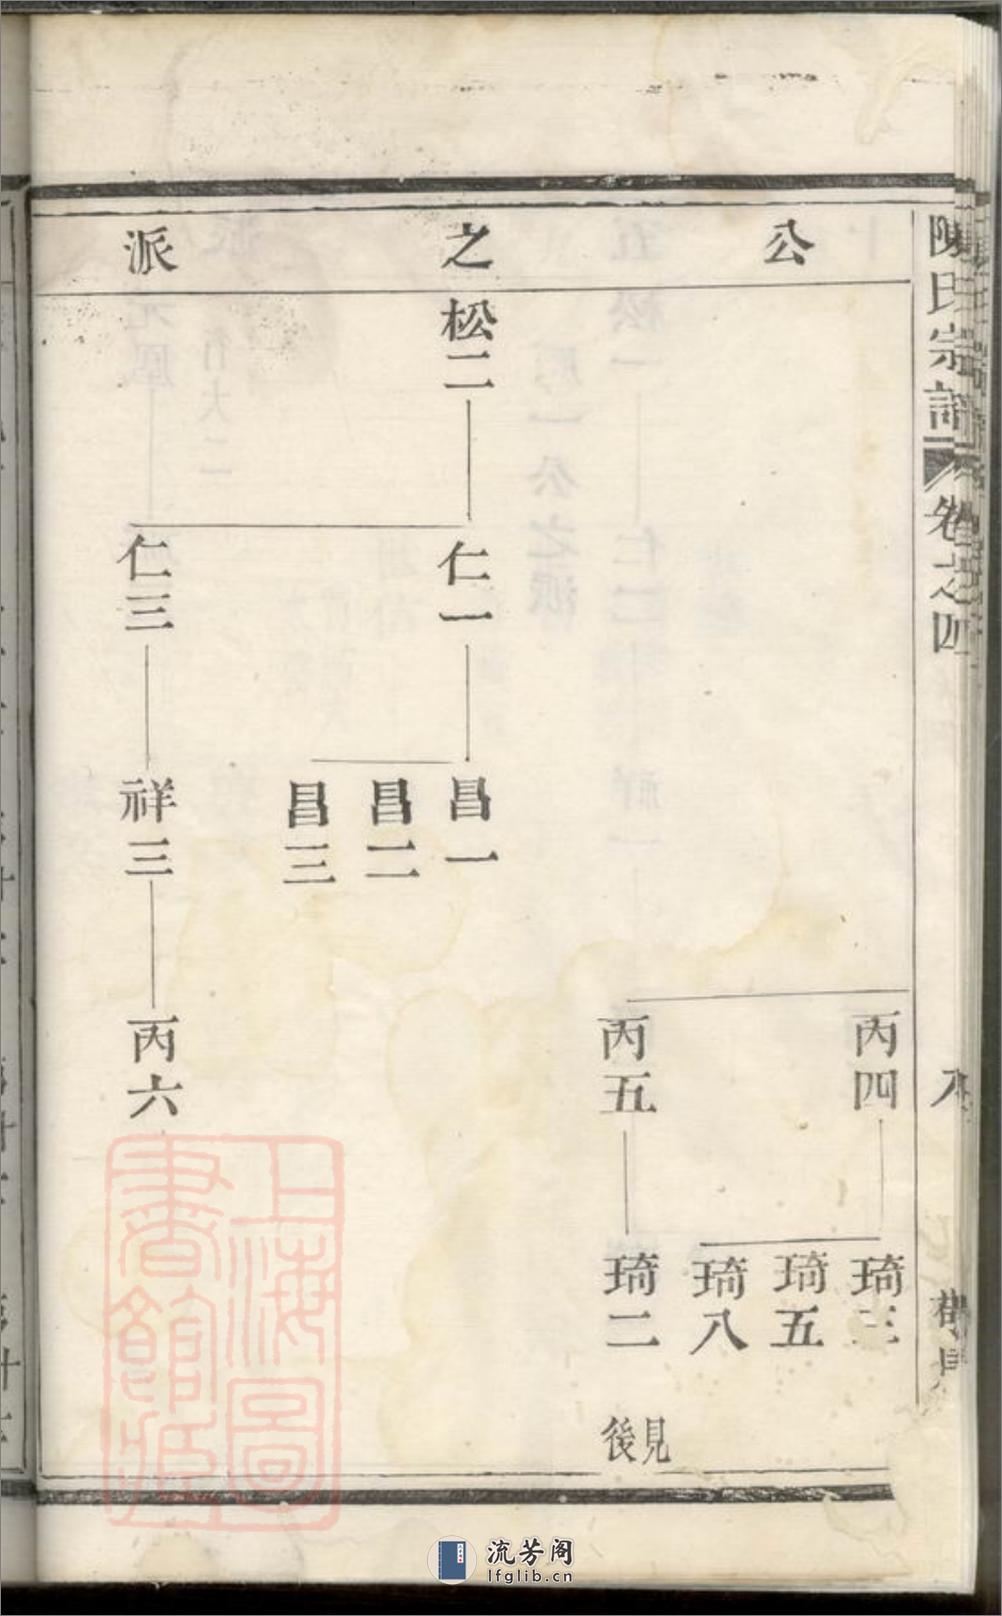 陳氏宗譜
卷之四
八
公之派
丙四
琦三
琦五
琦八
丙五
琦二
見後
松二
仁一
昌一
昌二
昌三
仁三
祥三
丙六
上海圖書館藏
流芳阁
lfglib.cn